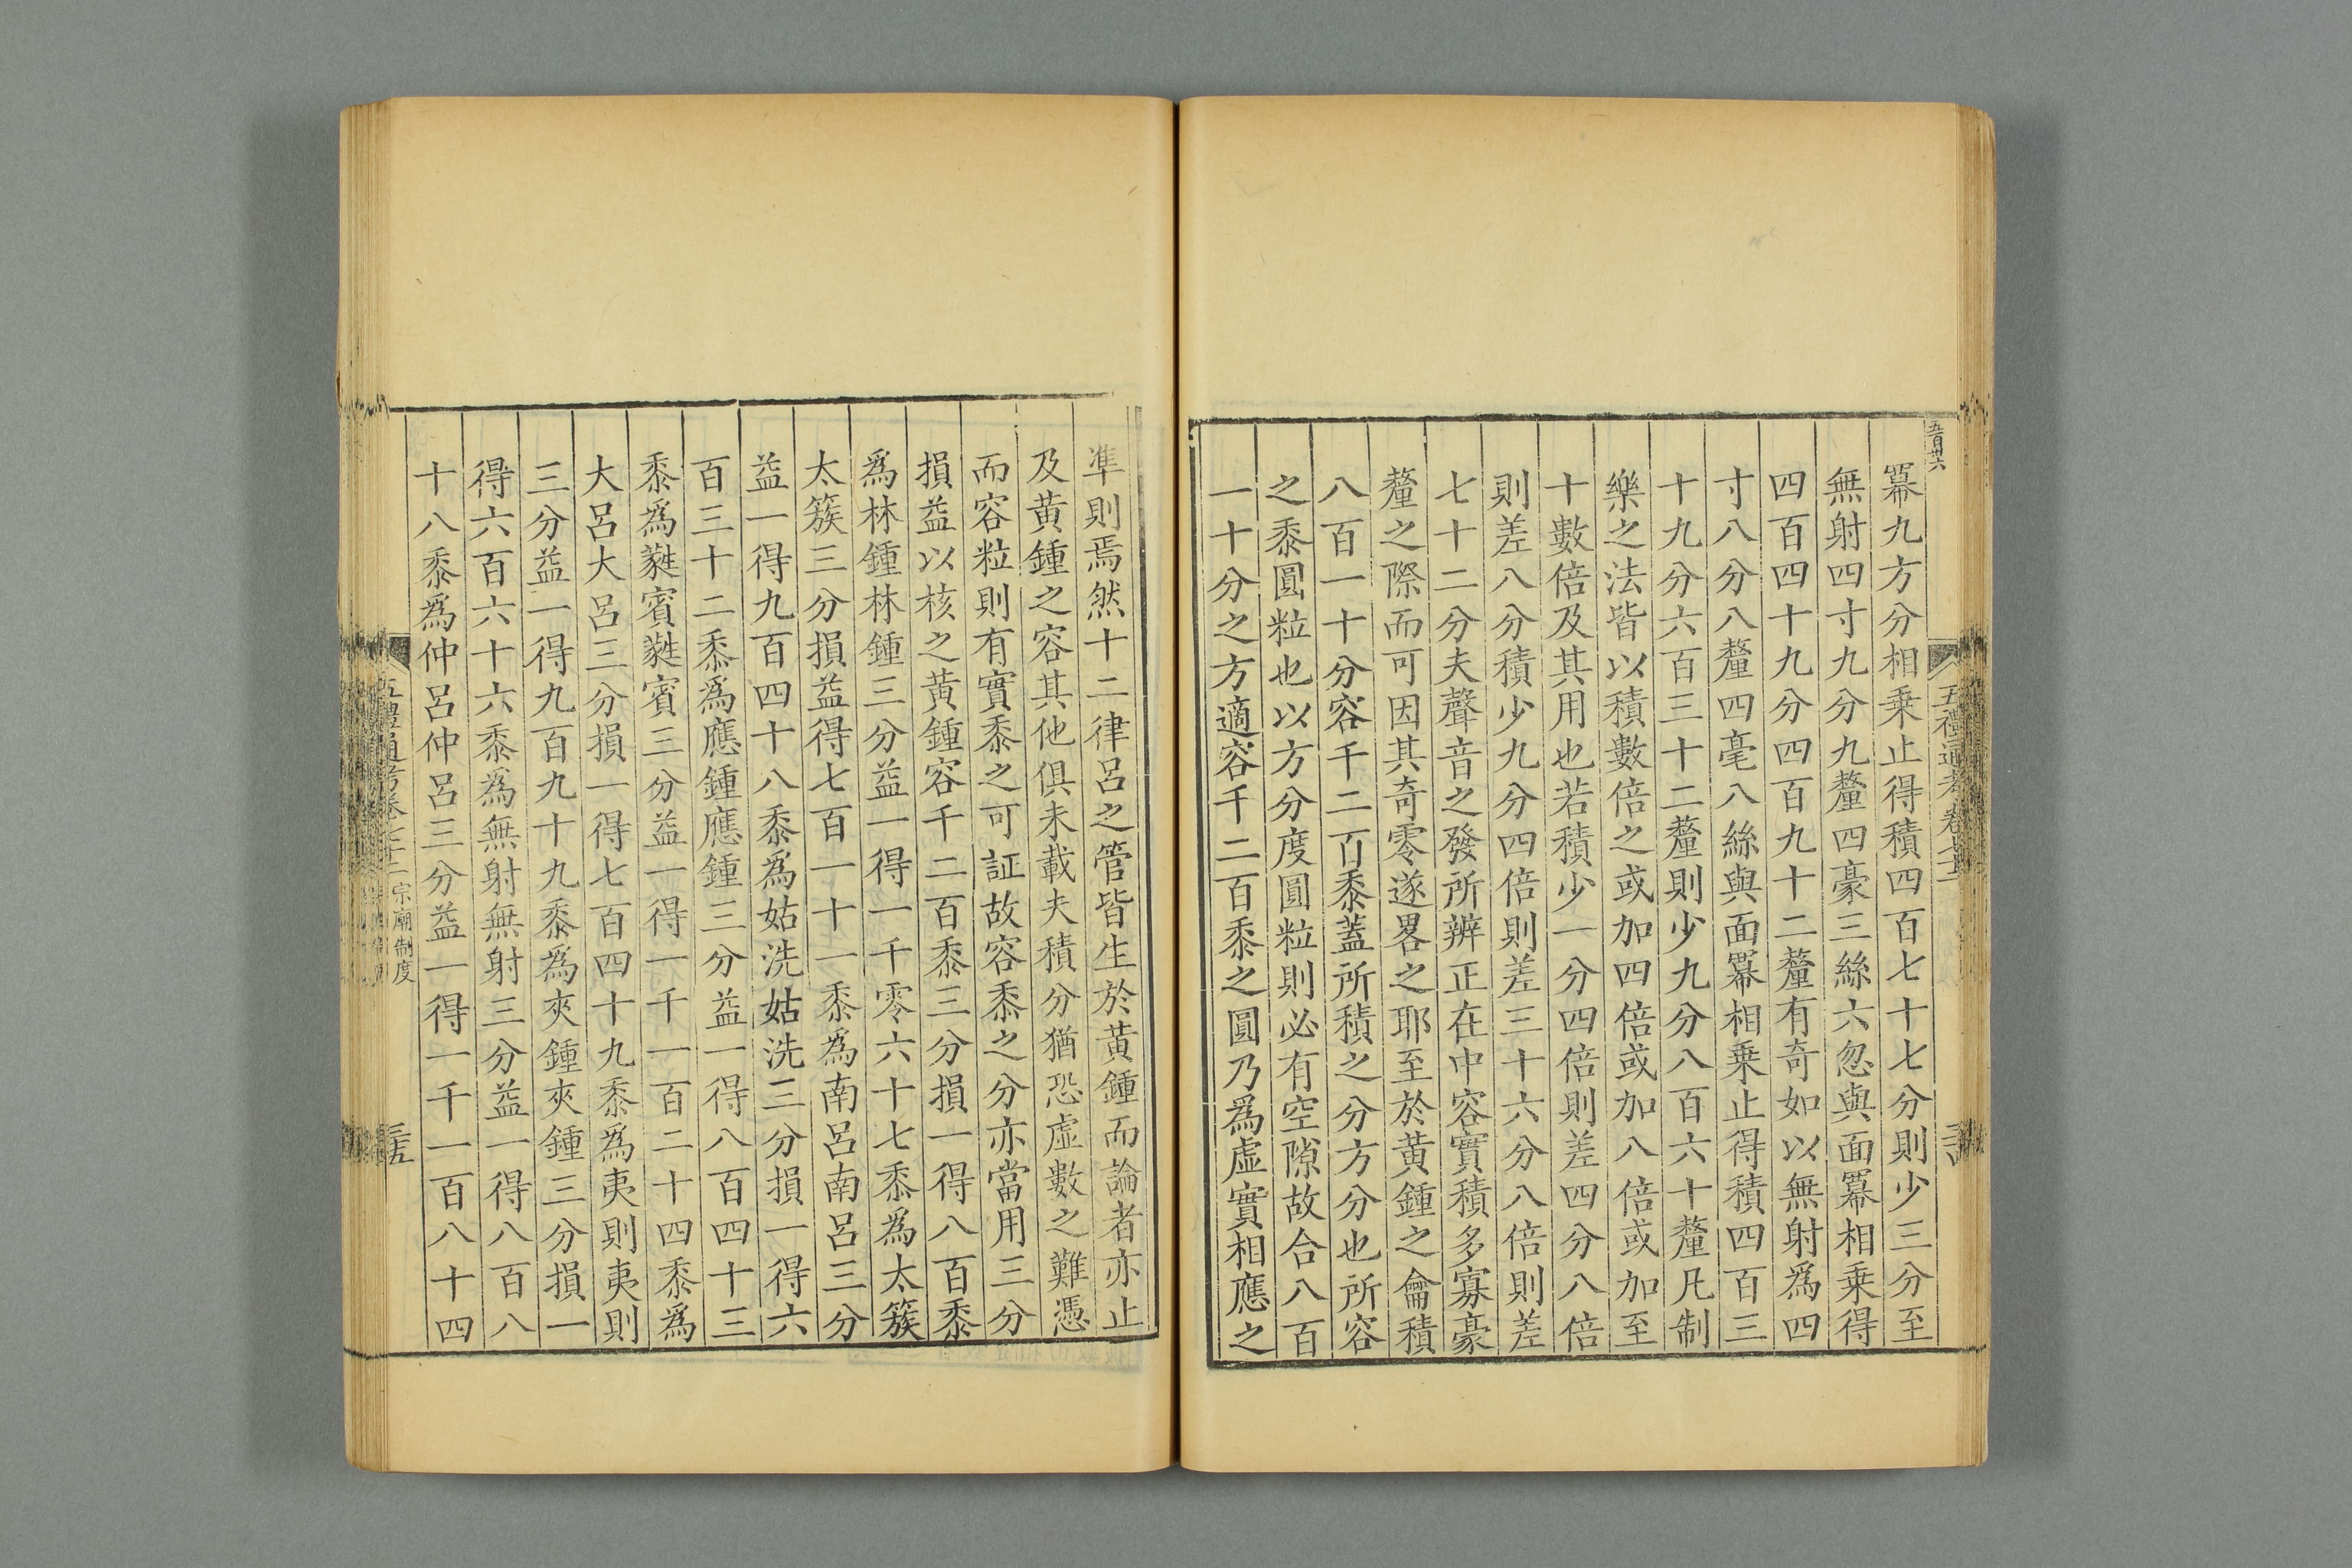 五百卅六
冪九方分相乗止得積四百七十七分則少三分至
無射四寸九分九釐四豪三絲六忽與面冪相乗得
四百四十九分四百九十二釐有奇如以無射爲四
寸八分八釐四毫八絲與面冪相乗止得積四百三
十九分六百三十二釐則少九分八百六十釐凡制
樂之法皆以積數倍之或加四倍或加八倍或加至
十數倍及其用也若積少一分四倍則差四分八倍
則差八分積少九分四倍則差三十六分八倍則差
七十二分夫聲音之發所辨正在中容實積多寡豪
釐之際而可因其奇零遂畧之耶至於黄鍾之龠積
八百一十分容千二百黍蓋所積之分方分也所容
之黍圓粒也以方分度圓粒則必有空隙故合八百
一十分之方適容千二百黍之圓乃爲虚實相應之
準則焉然十二律呂之管皆生於黄鍾而論者亦止
及黄鍾之容其他俱未載夫積分猶恐虚數之難憑
而容粒則有實黍之可証故容黍之分亦當用三分
損益以核之黄鍾容千二百黍三分損一得八百黍
爲林鍾林鍾三分益一得一千零六十七黍爲太簇
太簇三分損益得七百一十一黍爲南呂南呂三分
益一得九百四十八黍爲姑洗姑洗三分損一得六
百三十二黍爲應鍾應鍾三分益一得八百四十三
黍爲蕤賓蕤賓三分益一得一千一百二十四黍爲
大呂大呂三分損一得七百四十九黍爲夷則夷則
三分益一得九百九十九黍爲夾鍾夾鍾三分損一
得六百六十六黍爲無射無射三分益一得八百八
十八黍爲仲呂仲呂三分益一得一千一百八十四
五禮通考卷七十二 宗廟制度
三五